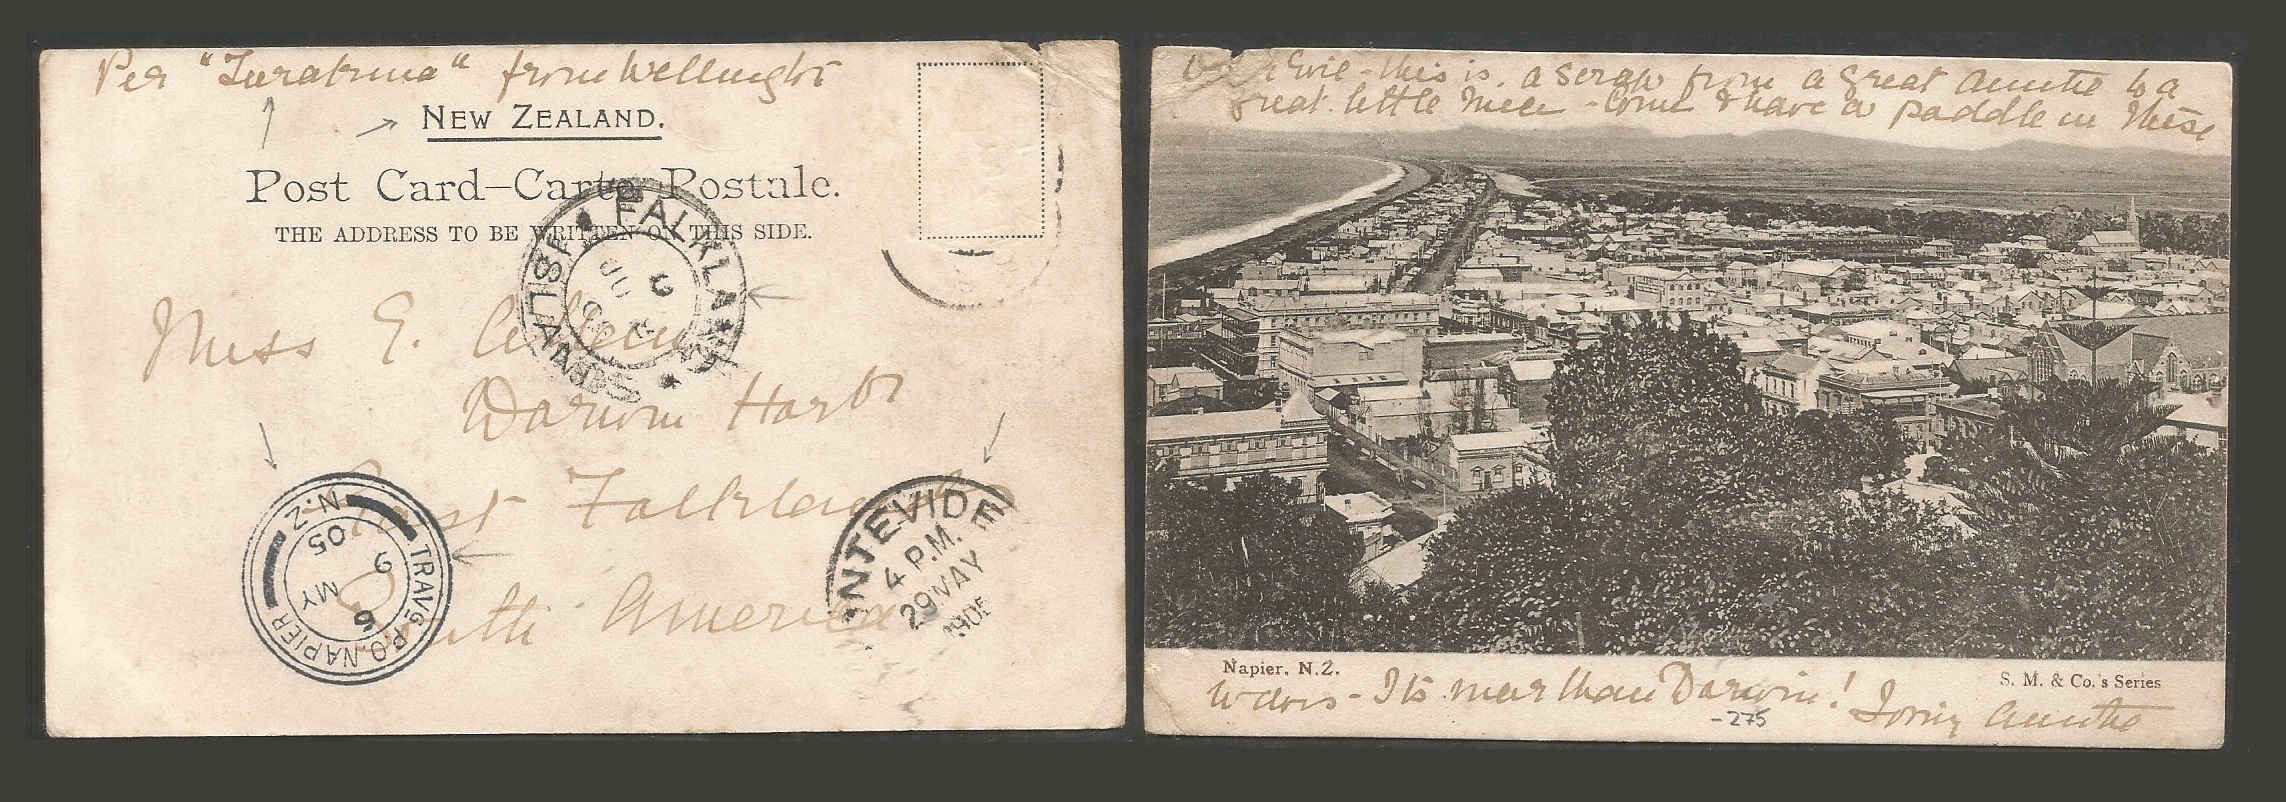 Per "Turakina" from Wellington
NEW ZEALAND.
Post Card—Carte Postale.
THE ADDRESS TO BE WRITTEN ON THIS SIDE.
FALKLAND
JU
Miss E.
Darwin Harbr
East Falkland
South America
TRAVG. P.O. NAPIER N.Z.
6
9 MY
05
NTEVIDE
4 P.M.
29 MAY
Evie - this is a scrap from a great Auntie to a
great little niece - Come & have a paddle in these
Napier, N.Z.
S. M. & Co.'s Series
waves - Its nicer than Darwin!
Auntie
-275